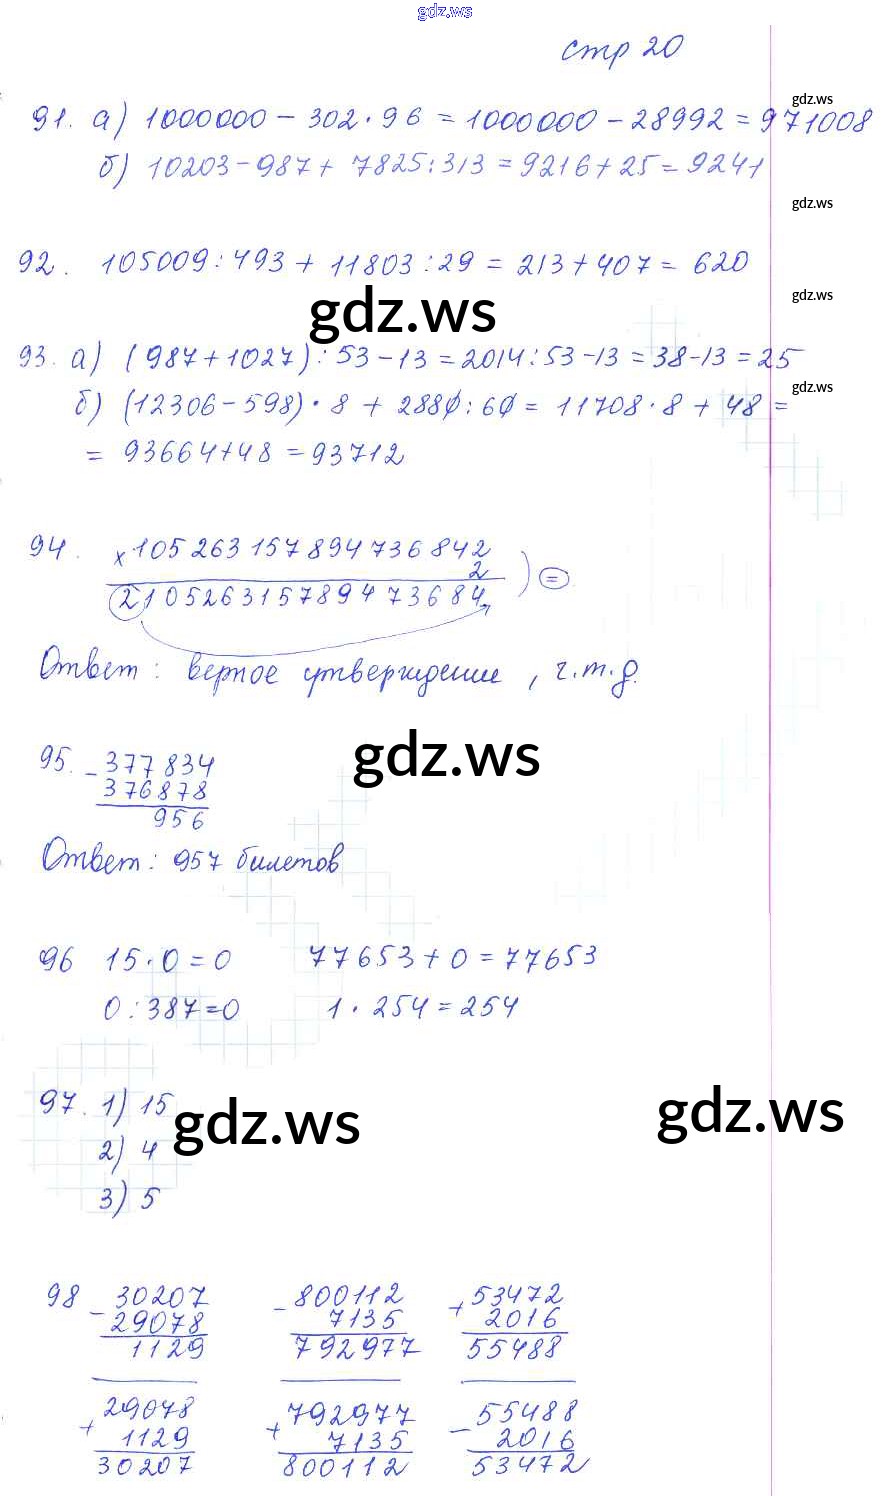 gdz.ws
стр 20
gdz.ws
91. а) 1000000 - 302 · 96 = 1000000 - 28992 = 971008
б) 10203 - 987 + 7825 : 313 = 9216 + 25 = 9241
gdz.ws
92. 105009 : 493 + 11803 : 29 = 213 + 407 = 620
gdz.ws
gdz.ws
93. а) (987 + 1027) : 53 - 13 = 2014 : 53 - 13 = 38 - 13 = 25
gdz.ws
б) (12306 - 598) · 8 + 2880 : 60 = 11708 · 8 + 48 =
= 93664 + 48 = 93712
94. x 105263157894736842
2
2105263157894736 84 ) =
Ответ : верное утверждение , ч.т.д.
gdz.ws
95. - 377834
376878
956
Ответ : 957 билетов
96 15 · 0 = 0 77653 + 0 = 77653
0 : 387 = 0 1 · 254 = 254
97. 1) 15
gdz.ws
gdz.ws
2) 4
3) 5
98 - 30207 - 800112 + 53472
29078 7135 2016
1129 792977 55488
+ 29078 + 792977 - 55488
1129 7135 2016
30207 800112 53472